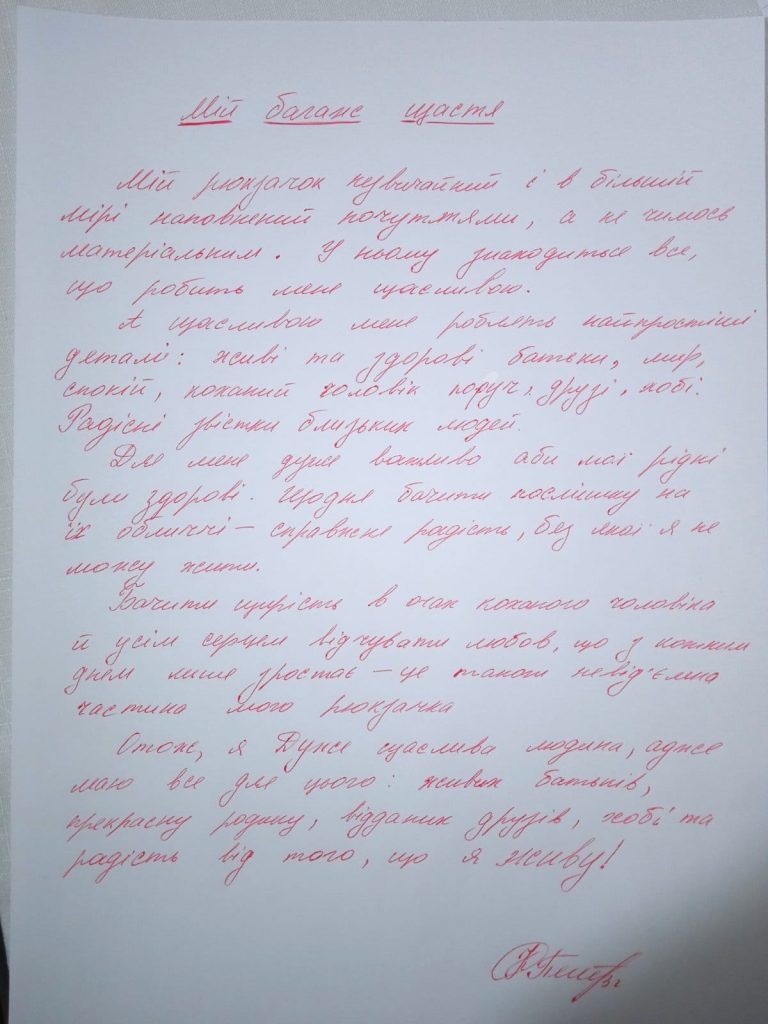 Мій баланс щастя
Мій рюкзачок незвичайний і в більшій
мірі наповнений почуттями, а не чимось
матеріальним. У ньому знаходиться все,
що робить мене щасливою.
А щасливою мене роблять найпростіші
деталі: живі та здорові батьки, мир,
спокій, коханий чоловік поруч, друзі, хобі.
Радісні звістки близьких людей.
Для мене дуже важливо аби мої рідні
були здорові. Щодня бачити посмішку на
їх обличчі – справжня радість, без якої я не
можу жити.
Бачити щирість в очах коханого чоловіка
й усім серцем відчувати любов, що з кожним
днем лише зростає – це також невід'ємна
частина мого рюкзачка
Отож, я Дуже щаслива людина, адже
маю все для цього: живих батьків,
прекрасну родину, відданих друзів, хобі та
радість від того, що я живу!